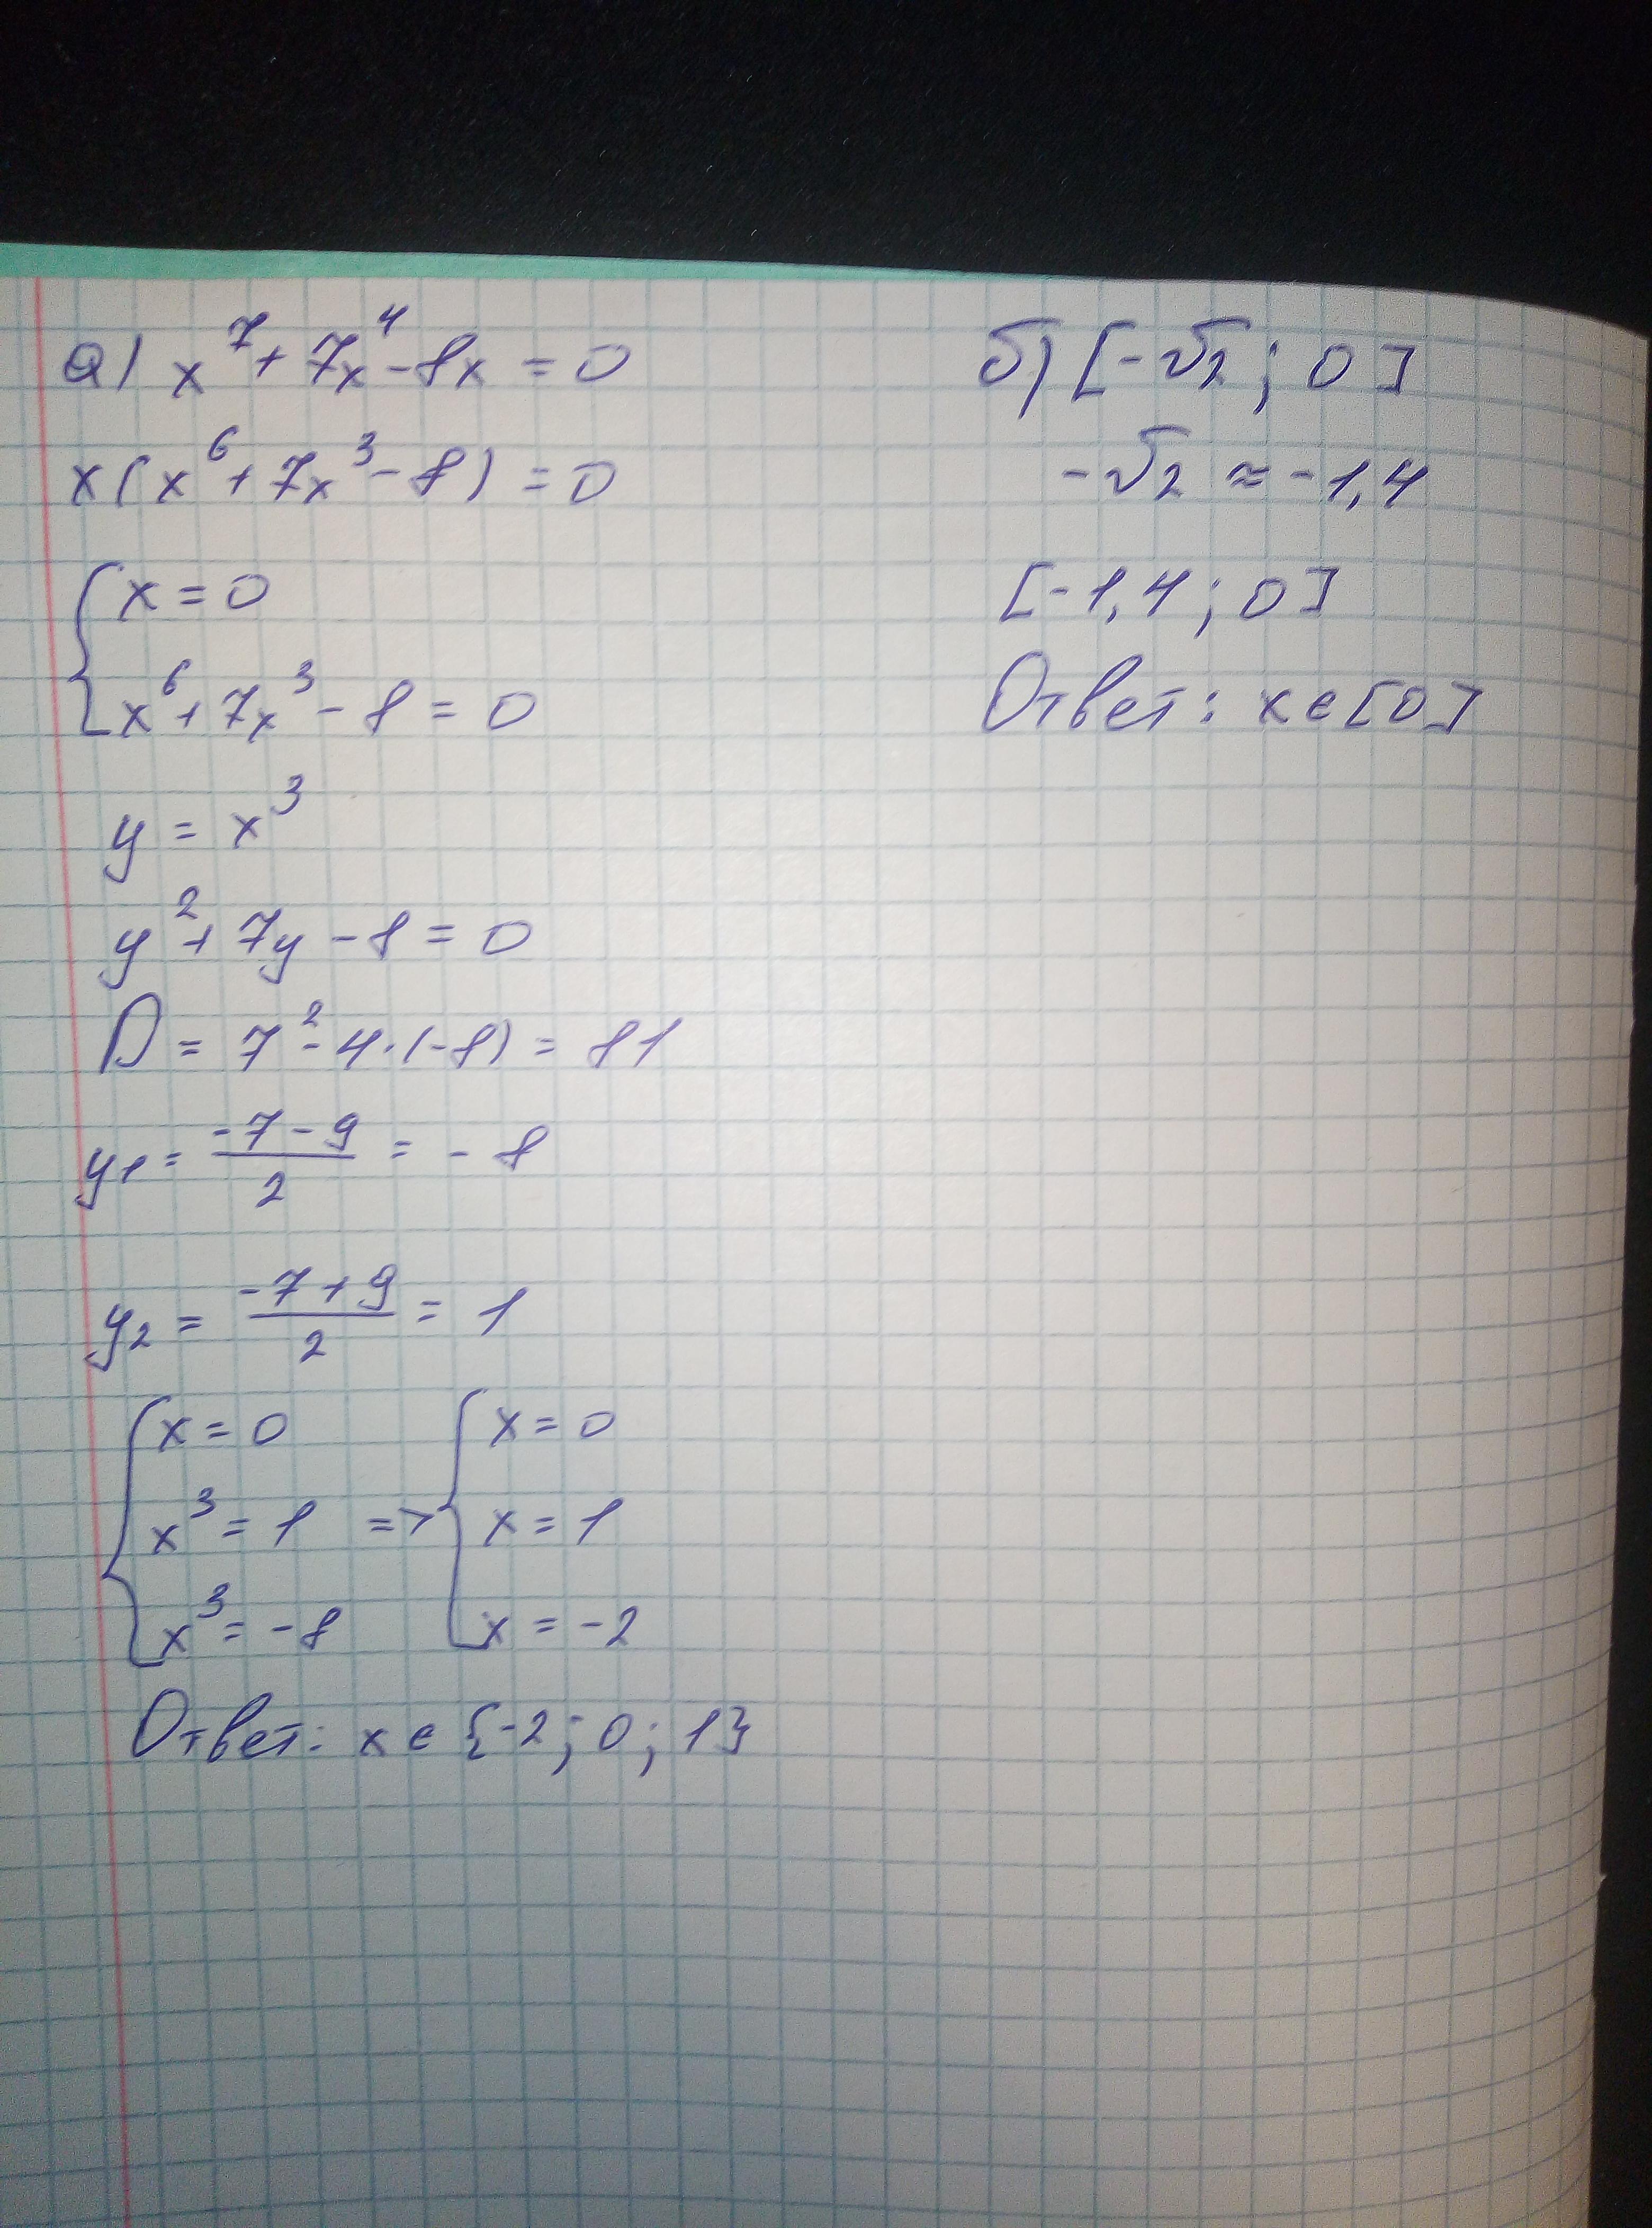 а) x⁷ + 7x⁴ - 8x = 0
x(x⁶ + 7x³ - 8) = 0
{ x = 0
x⁶ + 7x³ - 8 = 0
y = x³
y² + 7y - 8 = 0
D = 7² - 4·(-8) = 81
y₁ = (-7-9)/2 = -8
y₂ = (-7+9)/2 = 1
{ x = 0 { x = 0
x³ = 1 => x = 1
x³ = -8 x = -2
Ответ: x ∈ {-2; 0; 1}
б) [-√2; 0]
-√2 ≈ -1,4
[-1,4; 0]
Ответ: x ∈ [0]